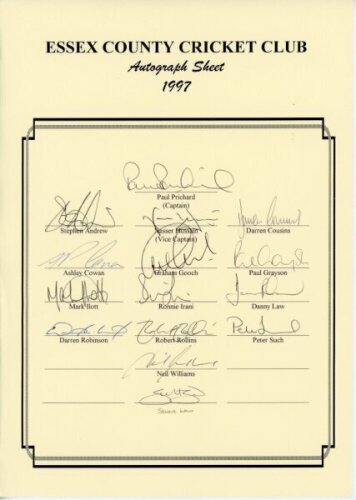 ESSEX COUNTY CRICKET CLUB
Autograph Sheet
1997
Paul Prichard
(Captain)
Stephen Andrew
Nasser Hussain
(Vice Captain)
Darren Cousins
Ashley Cowan
Graham Gooch
Paul Grayson
Mark Ilott
Ronnie Irani
Danny Law
Darren Robinson
Robert Rollins
Peter Such
Neil Williams
Stuart Law